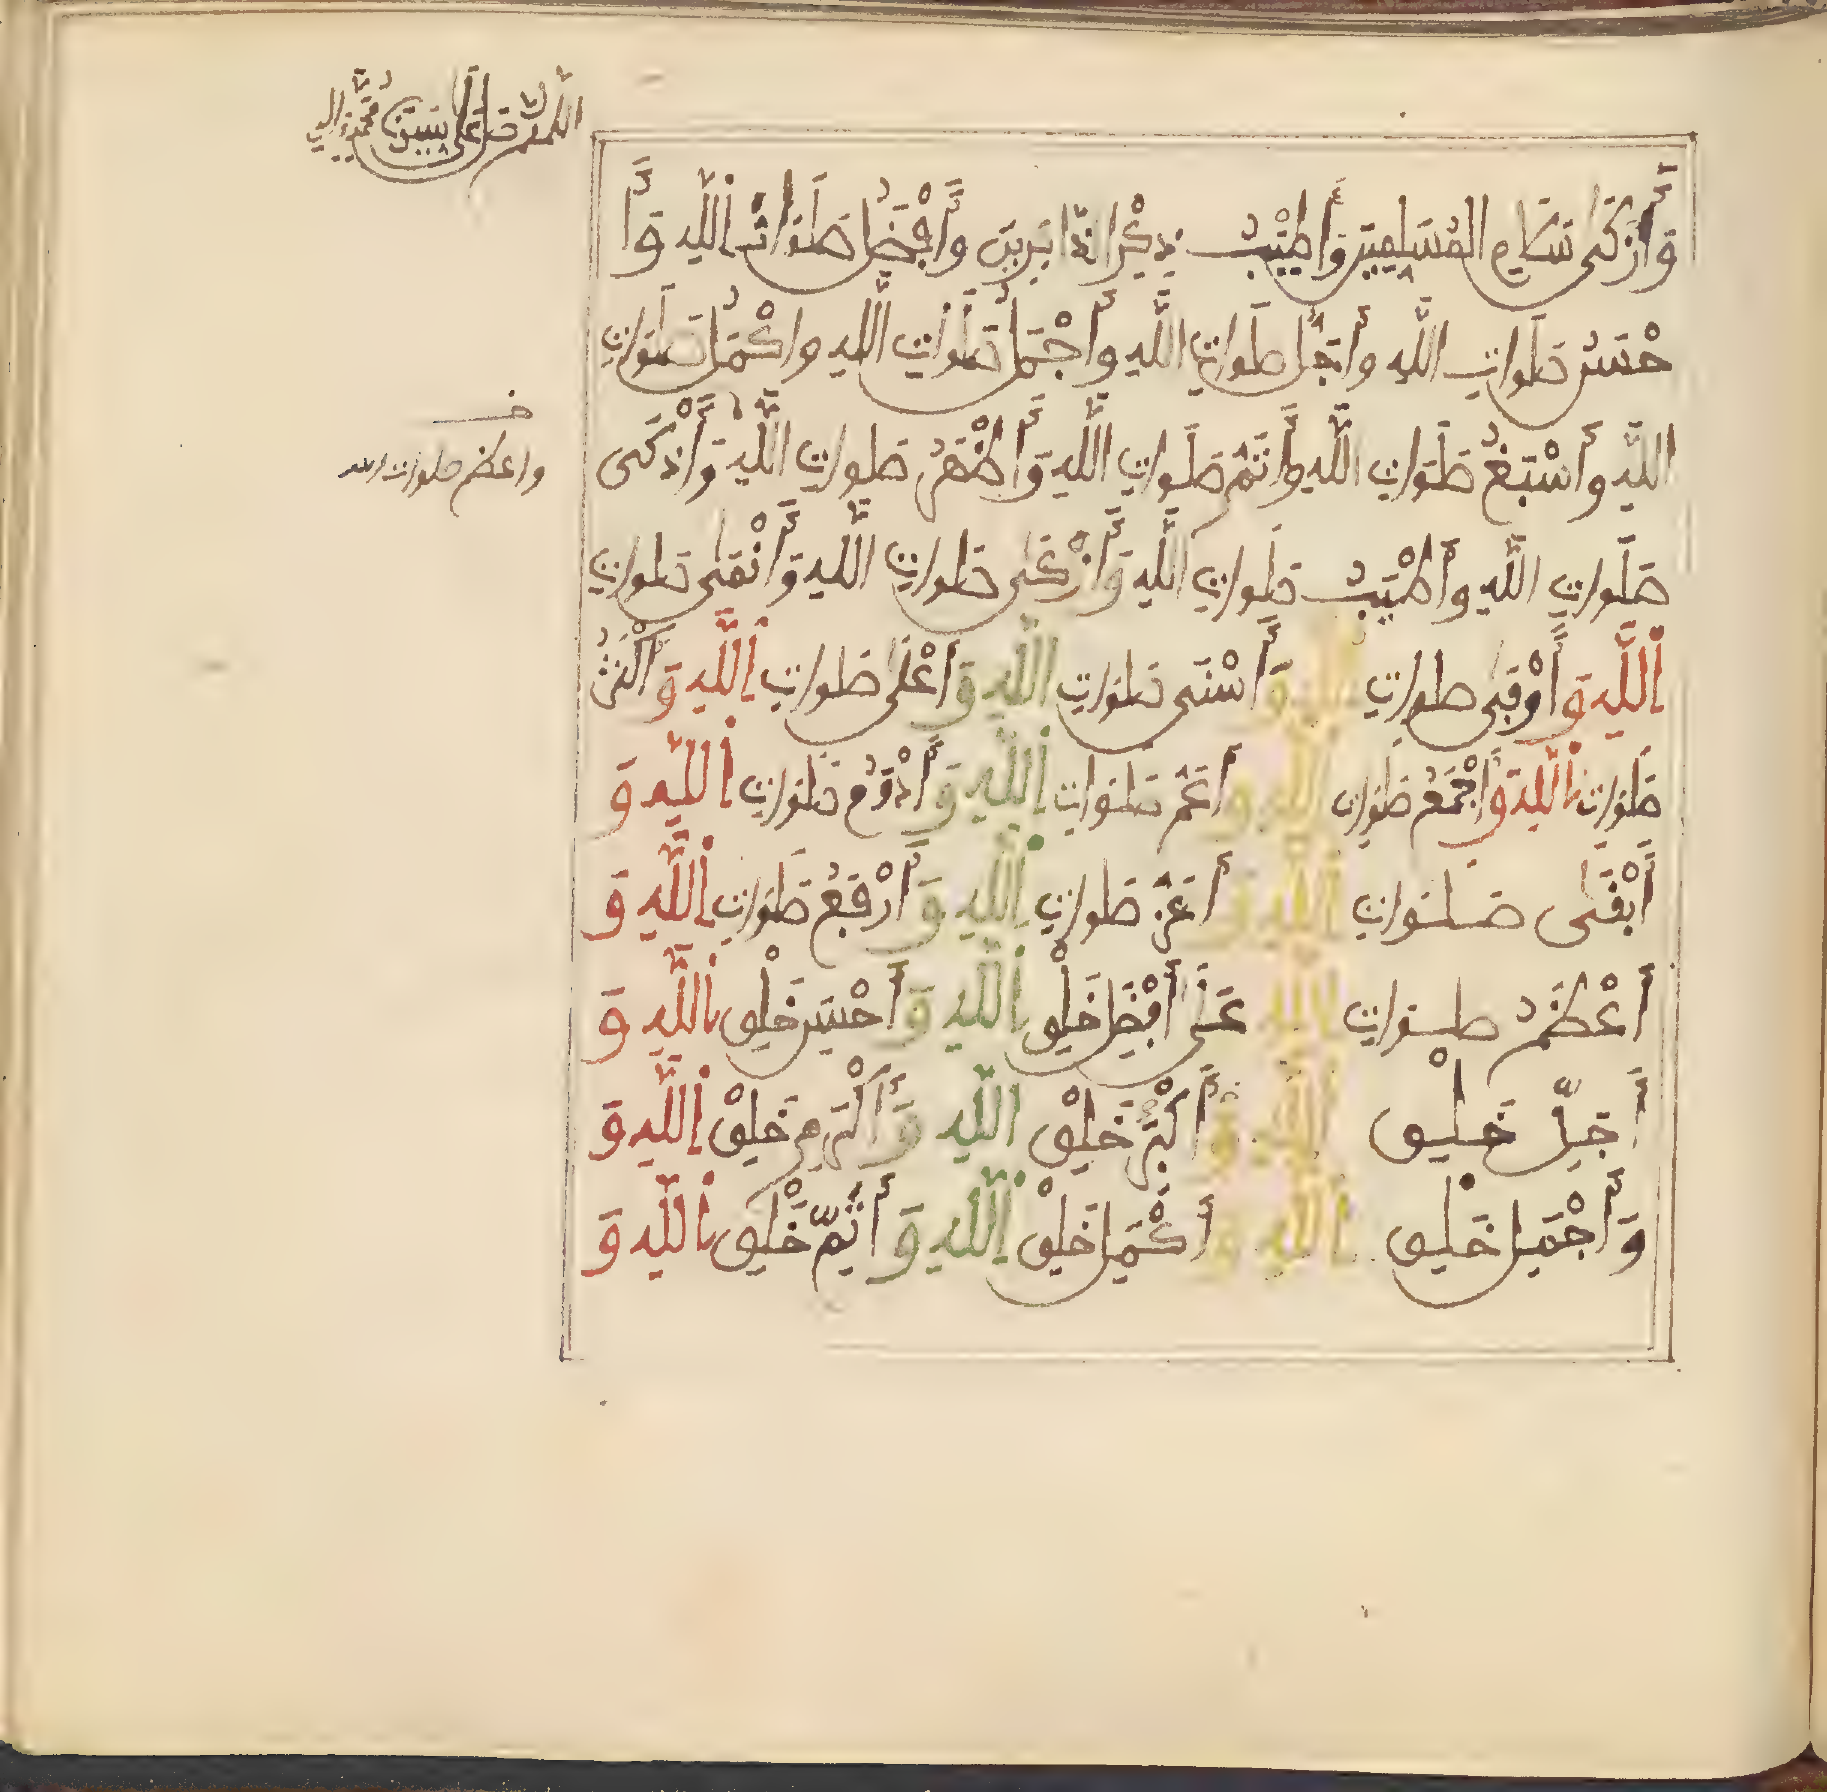 اللهم صل على سيدنا محمد والد
وَأَزْكَى سَلَامِ الْمُسَلِّمِينَ وَأَطْيَبُ ذِكْرِ الذَّاكِرِينَ وَأَفْضَلُ صَلَوَاتِ اللَّهِ وَأَ
حْسَنُ صَلَوَاتِ اللَّهِ وَأَجَلُّ صَلَوَاتِ اللَّهِ وَأَجْمَلُ صَلَوَاتِ اللَّهِ وَأَكْمَلُ صَلَوَاتِ
اللَّهِ وَأَسْبَغُ صَلَوَاتِ اللَّهِ وَأَتَمُّ صَلَوَاتِ اللَّهِ وَأَظْهَرُ صَلَوَاتِ اللَّهِ وَأَذْكَى
واعظم صلوات الله
صَلَوَاتِ اللَّهِ وَأَطْيَبُ صَلَوَاتِ اللَّهِ وَأَزْكَى صَلَوَاتِ اللَّهِ وَأَنْقَى صَلَوَاتِ
اللَّهِ وَأَوْفَى صَلَوَاتِ اللَّهِ وَأَسْنَى صَلَوَاتِ اللَّهِ وَأَعْلَى صَلَوَاتِ اللَّهِ وَأَكْثَرُ
صَلَوَاتِ اللَّهِ وَأَجْمَعُ صَلَوَاتِ اللَّهِ وَأَعَمُّ صَلَوَاتِ اللَّهِ وَأَدْوَمُ صَلَوَاتِ اللَّهِ وَ
أَبْقَى صَلَوَاتِ اللَّهِ وَأَعَزُّ صَلَوَاتِ اللَّهِ وَأَرْفَعُ صَلَوَاتِ اللَّهِ وَ
أَعْظَمُ صَلَوَاتِ اللَّهِ عَلَى أَفْضَلِ خَلْقِ اللَّهِ وَأَحْسَنِ خَلْقِ اللَّهِ وَ
أَجَلِّ خَلْقِ اللَّهِ وَأَكْبَرِ خَلْقِ اللَّهِ وَأَكْرَمِ خَلْقِ اللَّهِ وَ
وَأَجْمَلِ خَلْقِ اللَّهِ وَأَكْمَلِ خَلْقِ اللَّهِ وَأَتَمِّ خَلْقِ اللَّهِ وَ